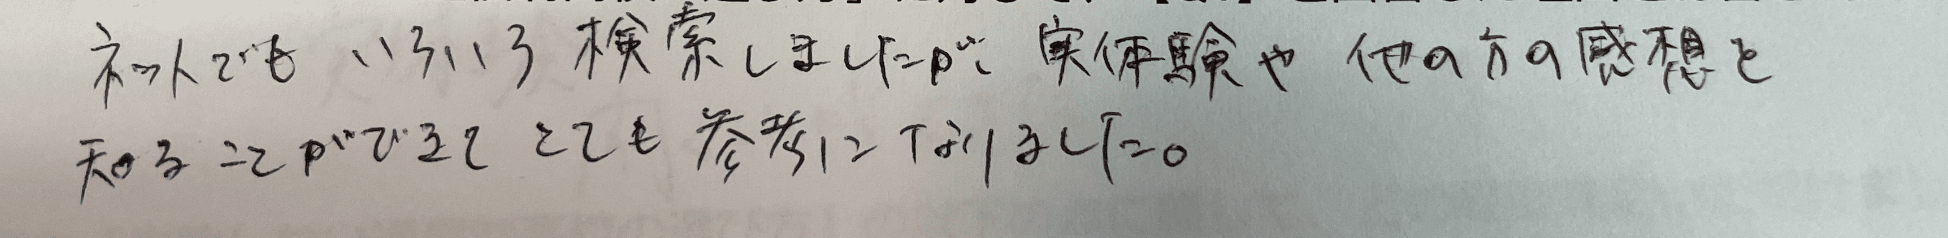 ネットでもいろいろ検索しましたが実体験や他の方の感想を
知ることができてとても参考になりました。